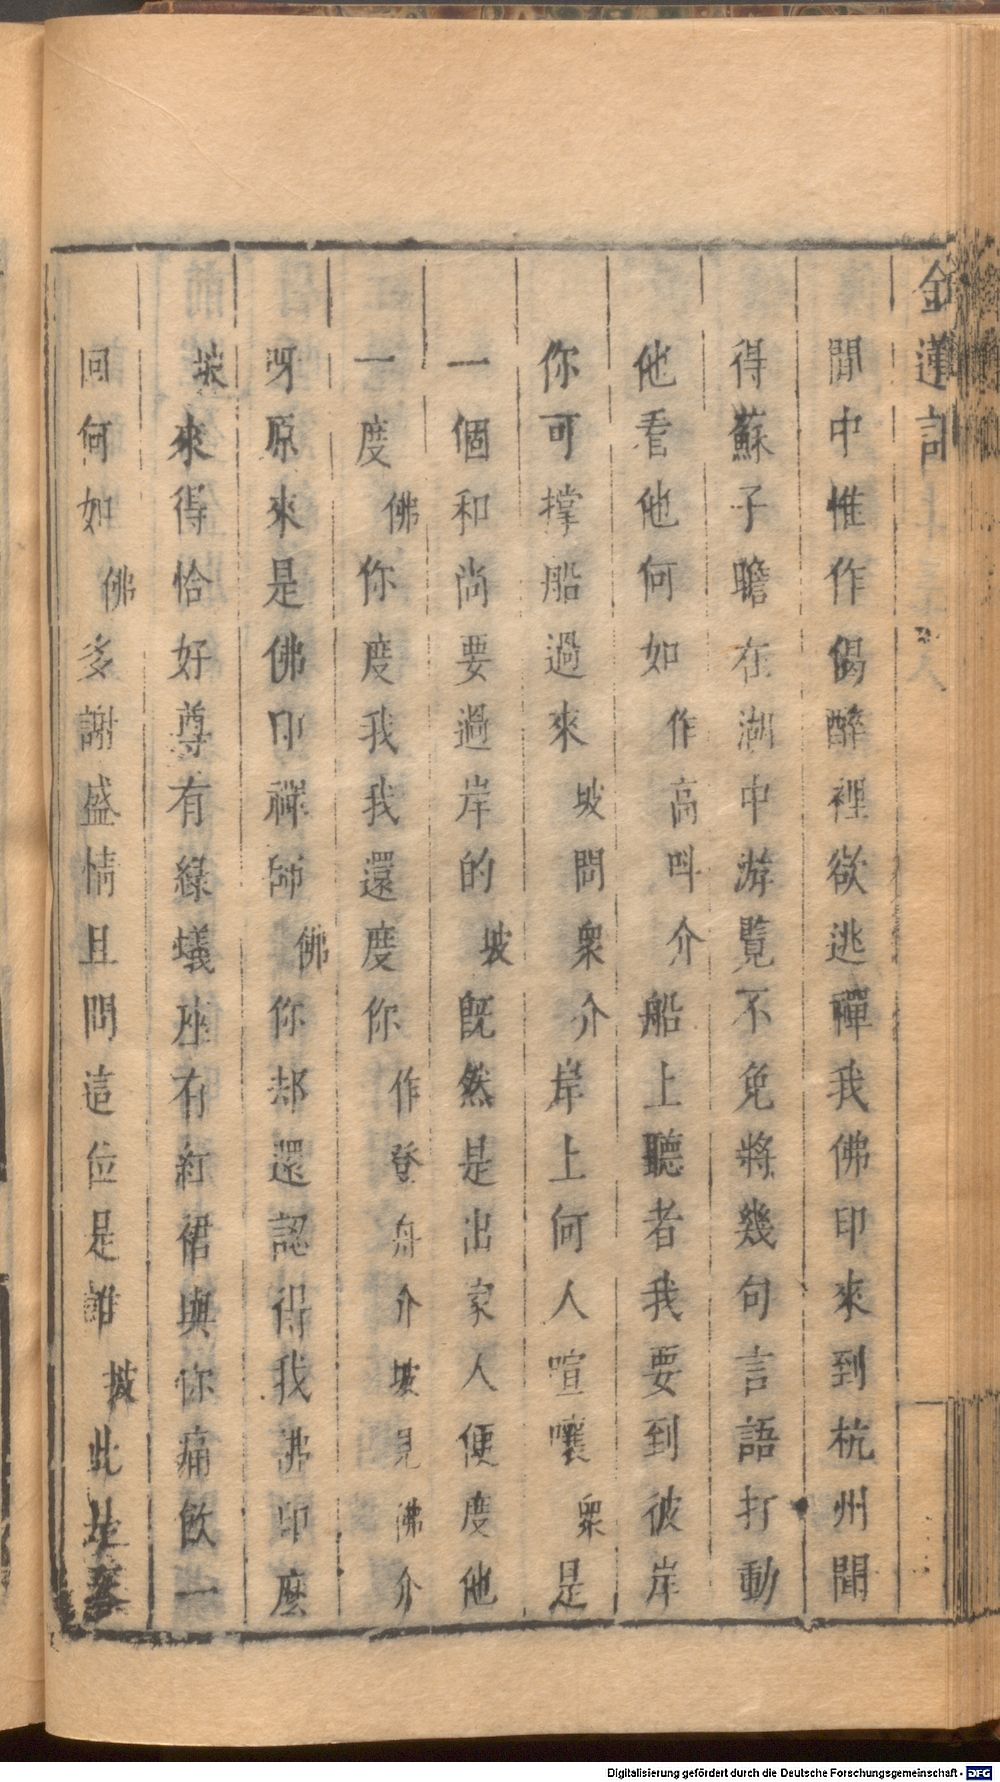 金蓮記
閒中惟作偈醉裡欲逃禪我佛印來到杭州聞
得蘇子瞻在湖中游覽不免將幾句言語打動
他看他何如 作高叫介 船上聽者我要到彼岸
你可撑船過來 坡問衆介 岸上何人喧嚷 衆 是
一個和尚要過岸的 坡 旣然是出家人便度他
一度 佛 你度我我還度你 作登舟介坡見佛介
呀原來是佛印禪師 佛 你却還認得我佛印麼
坡 來得恰好尊有綠蟻座有紅裙與你痛飲一
回何如 佛 多謝盛情且問這位是誰 坡 此
Digitalisierung gefördert durch die Deutsche Forschungsgemeinschaft - DFG